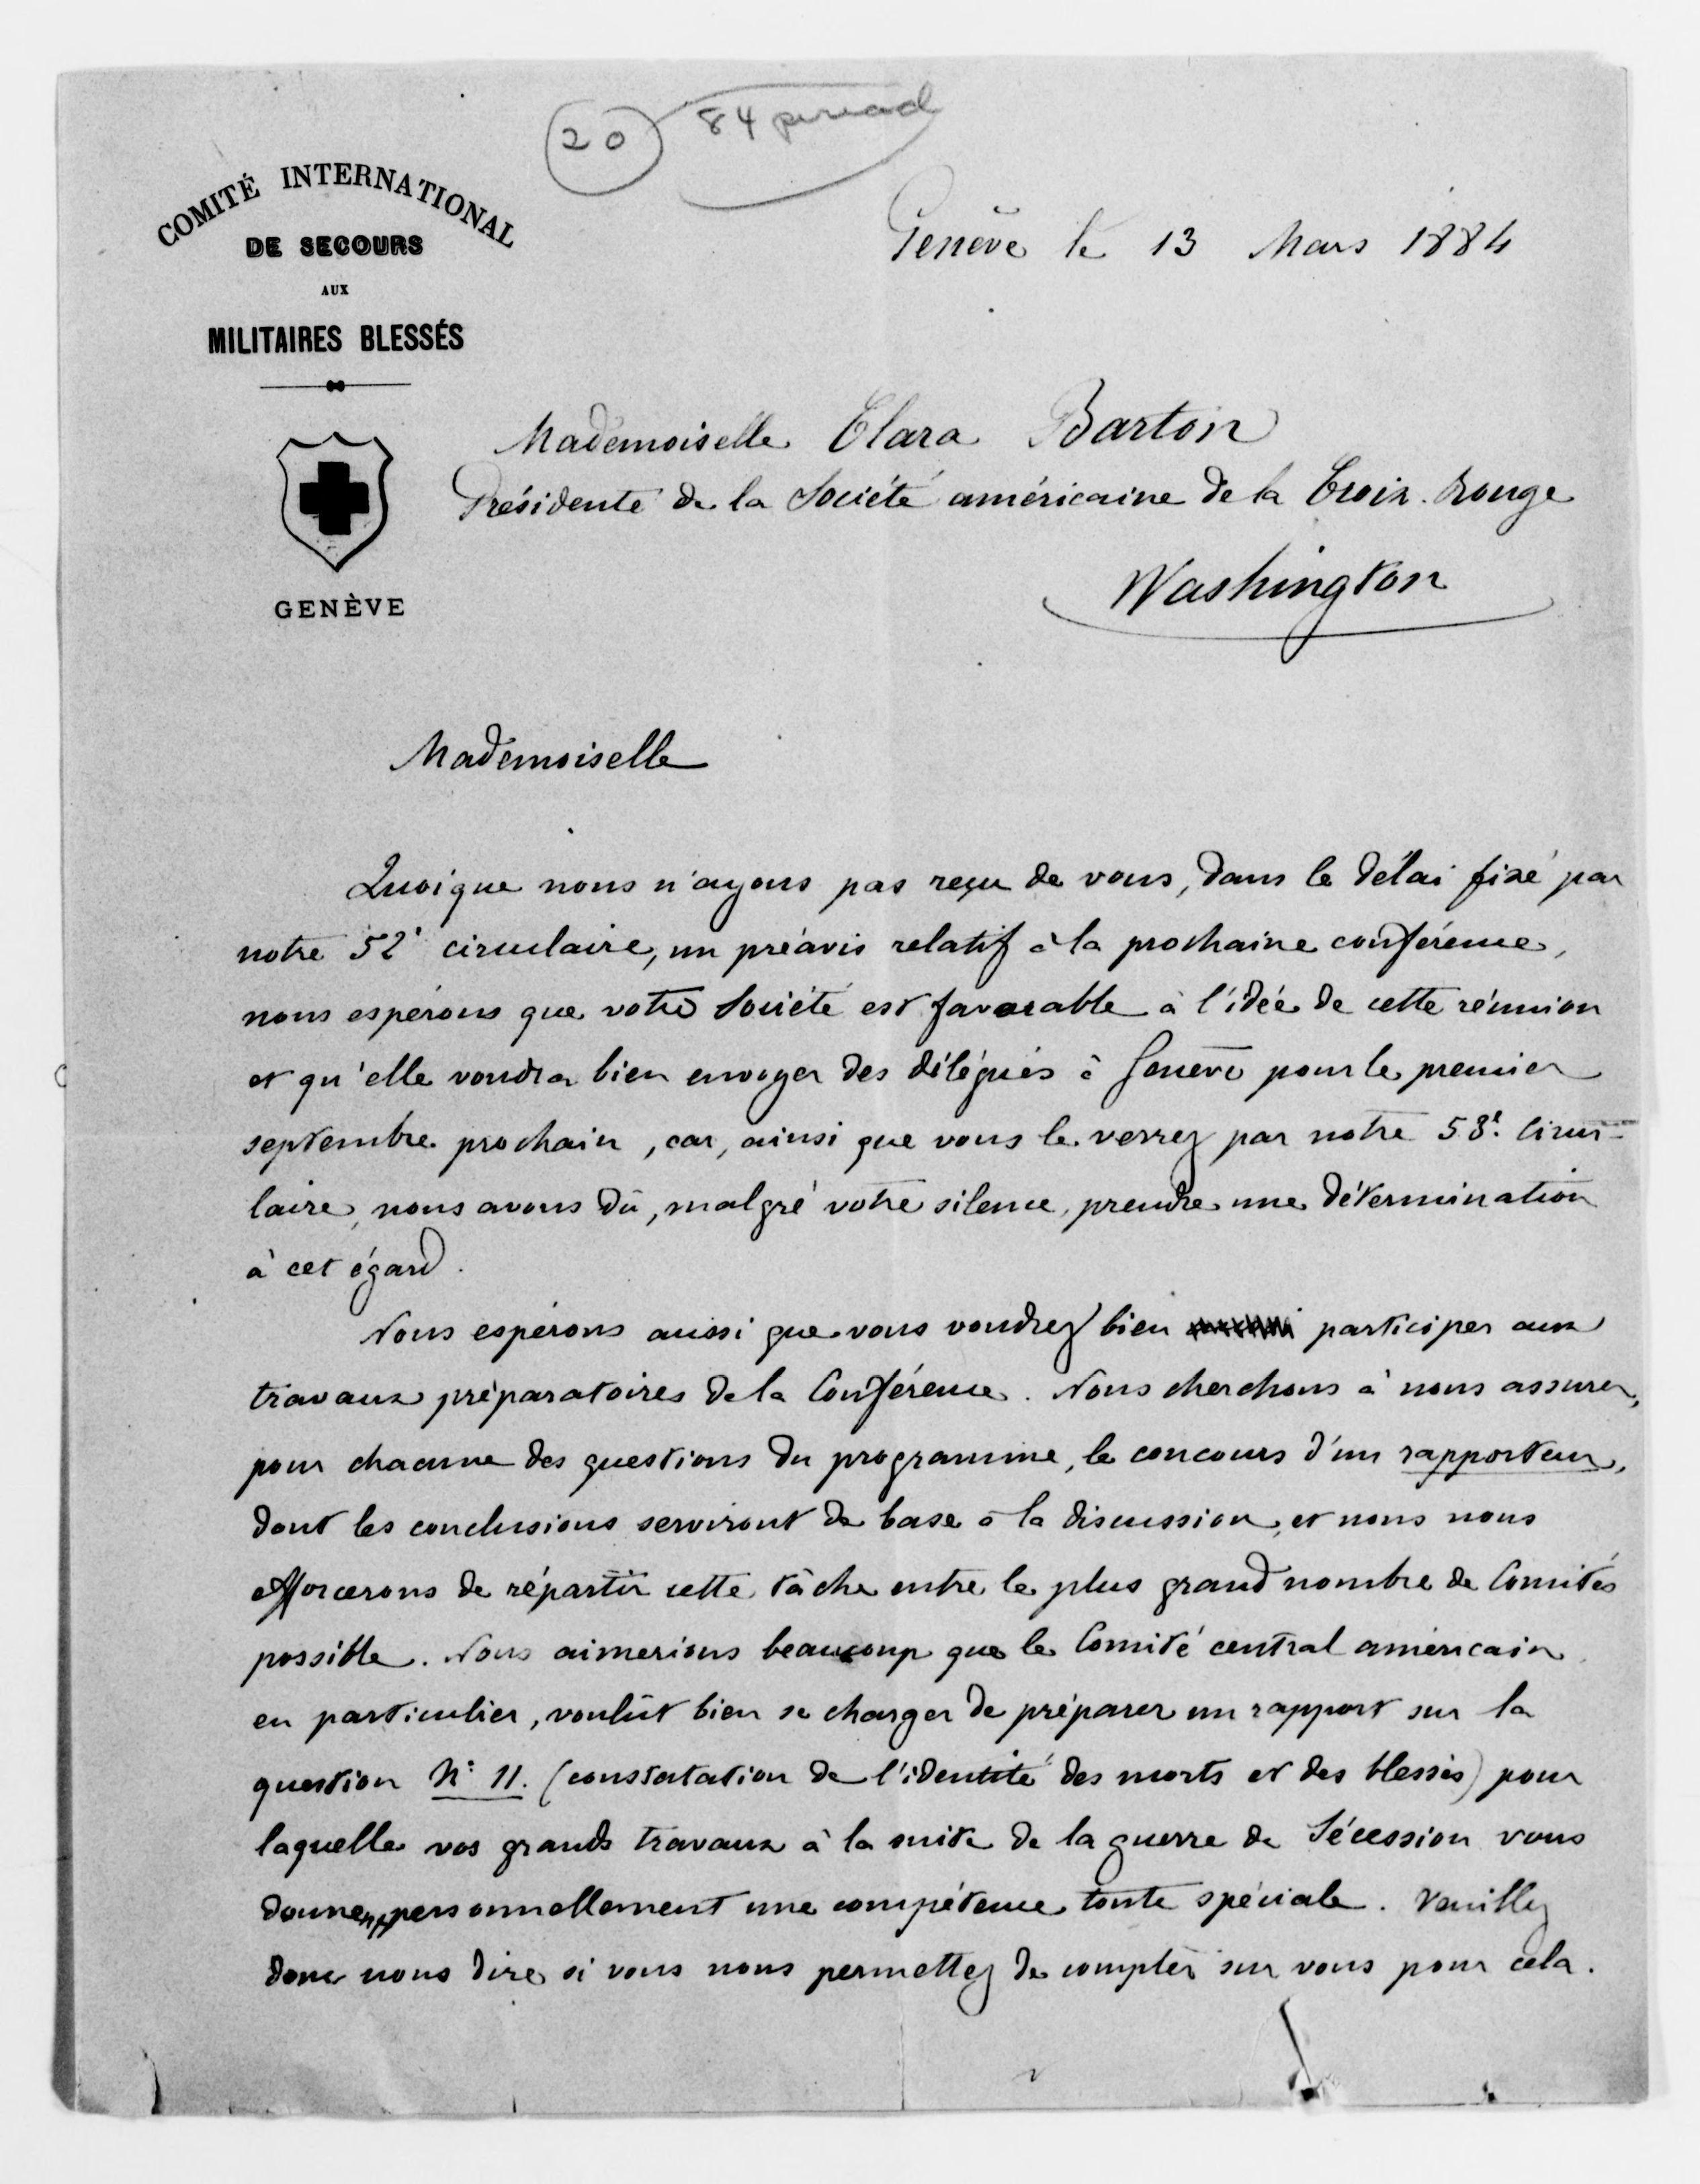 20 84 period
COMITÉ INTERNATIONAL
DE SECOURS
AUX
MILITAIRES BLESSÉS
GENÈVE
Genève le 13 Mars 1884
Mademoiselle Clara Barton
Présidente de la Société américaine de la Croix-Rouge
Washington
Mademoiselle
Quoique nous n'ayons pas reçu de vous, dans le délai fixé par
notre 52e circulaire, un préavis relatif à la prochaine conférence,
nous espérons que votre Société est favorable à l'idée de cette réunion
et qu'elle voudra bien envoyer des délégués à Genève pour le premier
septembre prochain, car, ainsi que vous le verrez par notre 58e. circu-
laire, nous avons dû, malgré votre silence, prendre une détermination
à cet égard.
Nous espérons aussi que vous voudrez bien participer aux
travaux préparatoires de la Conférence. Nous cherchons à nous assurer,
pour chacune des questions du programme, le concours d'un rapporteur,
dont les conclusions serviront de base à la discussion, et nous nous
efforcerons de répartir cette tâche entre le plus grand nombre de Comités
possible. Nous aimerions beaucoup que le Comité central américain
en particulier, voulût bien se charger de préparer un rapport sur la
question N° 11. (constatation de l'identité des morts et des blessés) pour
laquelle vos grands travaux à la suite de la guerre de Sécession vous
donnent personnellement une compétence toute spéciale. Veuillez
donc nous dire si vous nous permettez de compter sur vous pour cela.